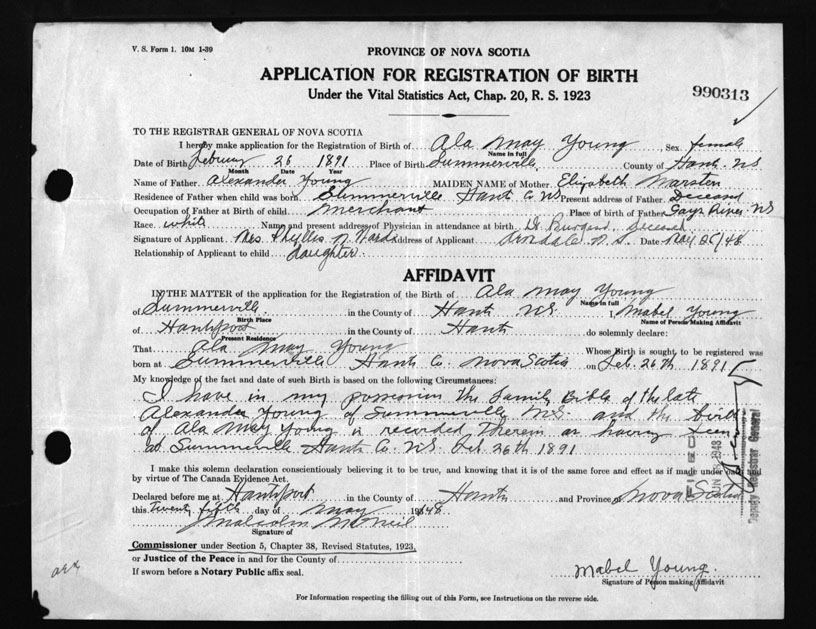 V. S. Form 1. 10M 1-39
PROVINCE OF NOVA SCOTIA
APPLICATION FOR REGISTRATION OF BIRTH
Under the Vital Statistics Act, Chap. 20, R. S. 1923
990313
TO THE REGISTRAR GENERAL OF NOVA SCOTIA
I hereby make application for the Registration of Birth of Ala May Young Sex female
Name in full
Date of Birth 26 1891 Place of Birth Summerville County of Hants NS
Month Date Year
Name of Father Alexander Young MAIDEN NAME of Mother Elizabeth Marsten
Residence of Father when child was born Summerville Hants Co NS Present address of Father Deceased
Occupation of Father at Birth of child Merchant Place of birth of Father Gays River NS
Race white Name and present address of Physician in attendance at birth Dr Burgess, Deceased
Signature of Applicant Mrs. Phyllis Address of Applicant N.S. Date May 25/48
Relationship of Applicant to child daughter
AFFIDAVIT
IN THE MATTER of the application for the Registration of the Birth of Ala May Young
Name in full
of Summerville in the County of Hants NS I, Mabel Young
Birth Place Name of Person Making Affidavit
of Hantsport in the County of Hants do solemnly declare:
Present Residence
That Ala May Young Whose Birth is sought to be registered was
born at Summerville Hants Co. Nova Scotia on Feb. 26th 1891
My knowledge of the fact and date of such Birth is based on the following Circumstances:
I have in my possession the Family Bible of the late
Alexander Young of Summerville N.S. and the birth
of Ala May Young is recorded therein as having been
at Summerville Hants Co. N.S. Feb 26th 1891
I make this solemn declaration conscientiously believing it to be true, and knowing that it is of the same force and effect as if made under oath and
by virtue of The Canada Evidence Act.
Declared before me at Hantsport in the County of Hants and Province of Nova Scotia
this twenty fifth day of May 1948
Malcolm McNeil
Signature of
Commissioner under Section 5, Chapter 38, Revised Statutes, 1923,
or Justice of the Peace in and for the County of
If sworn before a Notary Public affix seal.
Mabel Young
Signature of Person making Affidavit
For Information respecting the filling out of this Form, see Instructions on the reverse side.
Deputy Registrar General